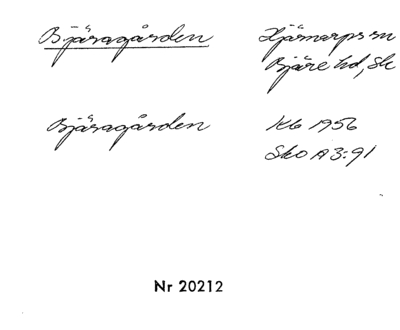 Bjäragården
Hjärnarps sn
Bjäre hd, Sk
Bjäragården
Kb 1956
Sko A3:91
Nr 20212